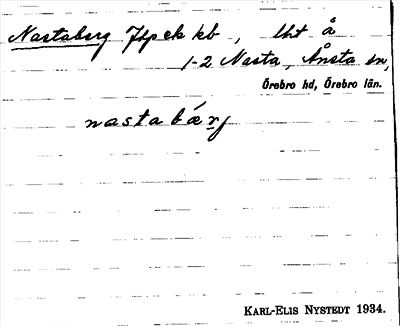 Nastaberg Jspek kb, lht å
1-2 Nasta, Ånsta sn,
Örebro hd, Örebro län.
nastabærj
KARL-ELIS NYSTEDT 1934.